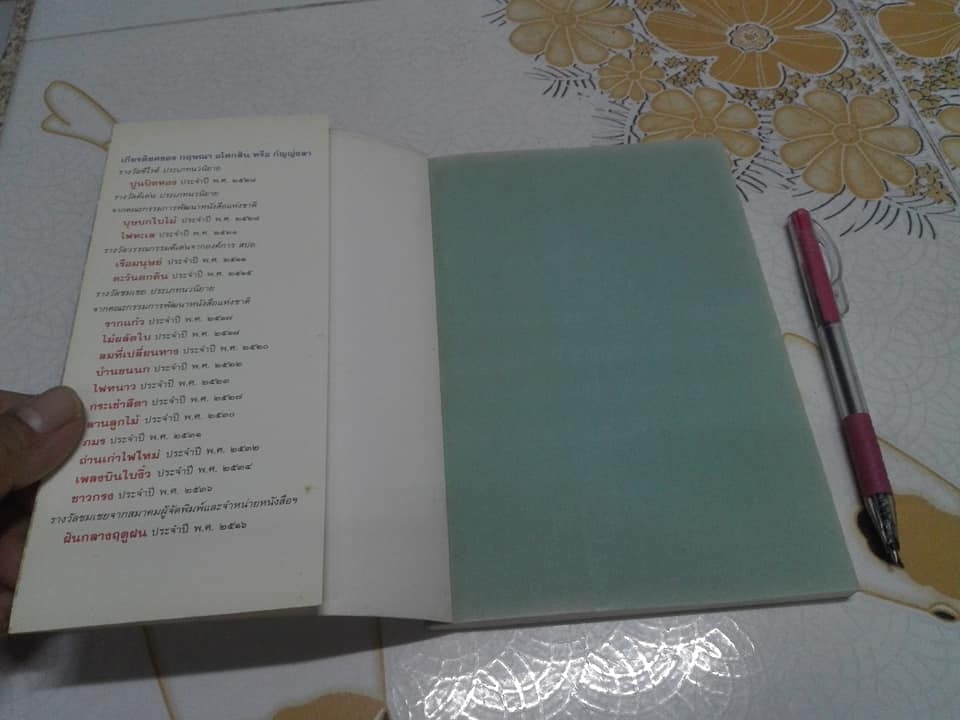 เกียรติยศของ กฤษณา อโศกสิน หรือ กัญญ์ชลา
รางวัลซีไรต์ ประเภทนวนิยาย
ปูนปิดทอง ประจำปี พ.ศ. ๒๕๒๘
รางวัลดีเด่น ประเภทนวนิยาย
จากคณะกรรมการพัฒนาหนังสือแห่งชาติ
บุษบกใบไม้ ประจำปี พ.ศ. ๒๕๒๘
ไฟทะเล ประจำปี พ.ศ. ๒๕๓๑
รางวัลวรรณกรรมดีเด่นจากองค์การ สปอ.
เรือมนุษย์ ประจำปี พ.ศ. ๒๕๑๑
ตะวันตกดิน ประจำปี พ.ศ. ๒๕๑๕
รางวัลชมเชย ประเภทนวนิยาย
จากคณะกรรมการพัฒนาหนังสือแห่งชาติ
รากแก้ว ประจำปี พ.ศ. ๒๕๑๗
ไม้ผลัดใบ ประจำปี พ.ศ. ๒๕๑๘
ลมที่เปลี่ยนทาง ประจำปี พ.ศ. ๒๕๒๐
บ้านขนนก ประจำปี พ.ศ. ๒๕๒๒
ไฟหนาว ประจำปี พ.ศ. ๒๕๒๓
กระเช้าสีดา ประจำปี พ.ศ. ๒๕๒๗
ลานลูกไม้ ประจำปี พ.ศ. ๒๕๓๐
ภมร ประจำปี พ.ศ. ๒๕๓๑
ถ่านเก่าไฟใหม่ ประจำปี พ.ศ. ๒๕๓๒
เพลงบินใบงิ้ว ประจำปี พ.ศ. ๒๕๓๔
ขาวกรง ประจำปี พ.ศ. ๒๕๓๖
รางวัลชมเชยจากสมาคมผู้จัดพิมพ์และจำหน่ายหนังสือฯ
ฝันกลางฤดูฝน ประจำปี พ.ศ. ๒๕๑๖